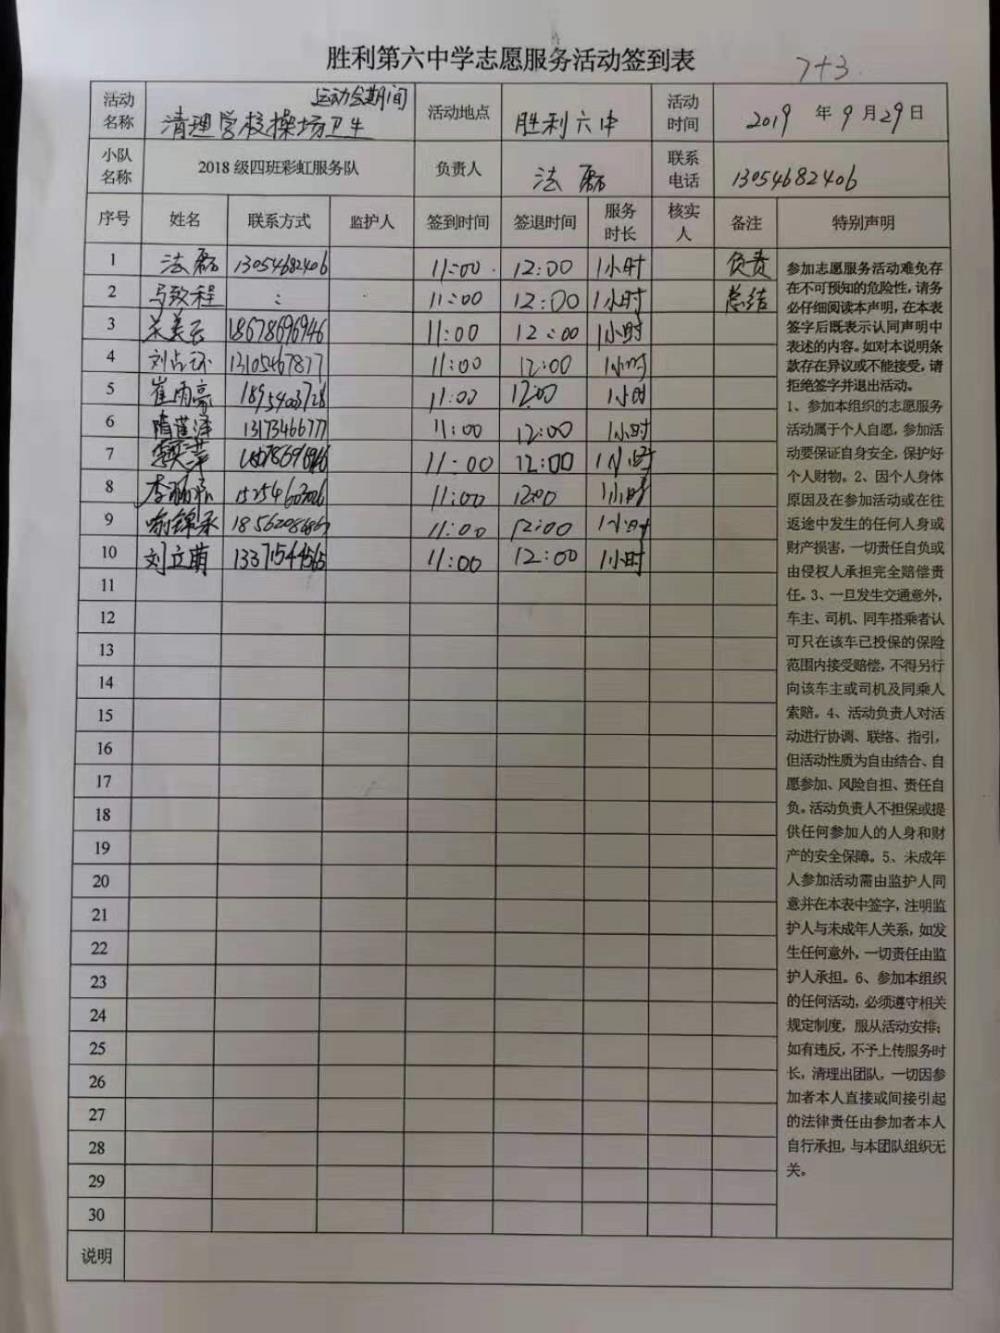 胜利第六中学志愿服务活动签到表
7+3
活动名称 运动会期间 清理学校操场卫生 活动地点 胜利六中 活动时间 2019年9月29日
小队名称 2018级四班彩虹服务队 负责人 法磊 联系电话 13054682406
序号 姓名 联系方式 监护人 签到时间 签退时间 服务时长 核实人 备注 特别声明
1 法磊 13054682406 11:00 12:00 1小时 负责
2 马致程 : 11:00 12:00 1小时 总结
3 18678696946 11:00 12:00 1小时
4 13105467877 11:00 12:00 1小时
5 崔雨豪 11:00 12:00 1小时
6 1317346677 11:00 12:00 1小时
7 11:00 12:00 1小时
8 11:00 12:00 1小时
9 11:00 12:00 1小时
10 刘立萌 11:00 12:00 1小时
11
12
13
14
15
16
17
18
19
20
21
22
23
24
25
26
27
28
29
30
说明
参加志愿服务活动难免存
在不可预知的危险性,请务
必仔细阅读本声明,在本表
签字后既表示认同声明中
表述的内容。如对本说明条
款存在异议或不能接受,请
拒绝签字并退出活动。
1、参加本组织的志愿服务
活动属于个人自愿,参加活
动要保证自身安全,保护好
个人财物。2、因个人身体
原因及在参加活动或在往
返途中发生的任何人身或
财产损害,一切责任自负或
由侵权人承担完全赔偿责
任。3、一旦发生交通意外,
车主、司机、同车搭乘者认
可只在该车已投保的保险
范围内接受赔偿,不得另行
向该车主或司机及同乘人
索赔。4、活动负责人对活
动进行协调、联络、指引,
但活动性质为自由结合、自
愿参加、风险自担、责任自
负。活动负责人不担保或提
供任何参加人的人身和财
产的安全保障。5、未成年
人参加活动需由监护人同
意并在本表中签字,注明监
护人与未成年人关系,如发
生任何意外,一切责任由监
护人承担。6、参加本组织
的任何活动,必须遵守相关
规定制度,服从活动安排;
如有违反,不予上传服务时
长,清理出团队,一切因参
加者本人直接或间接引起
的法律责任由参加者本人
自行承担,与本团队组织无
关。